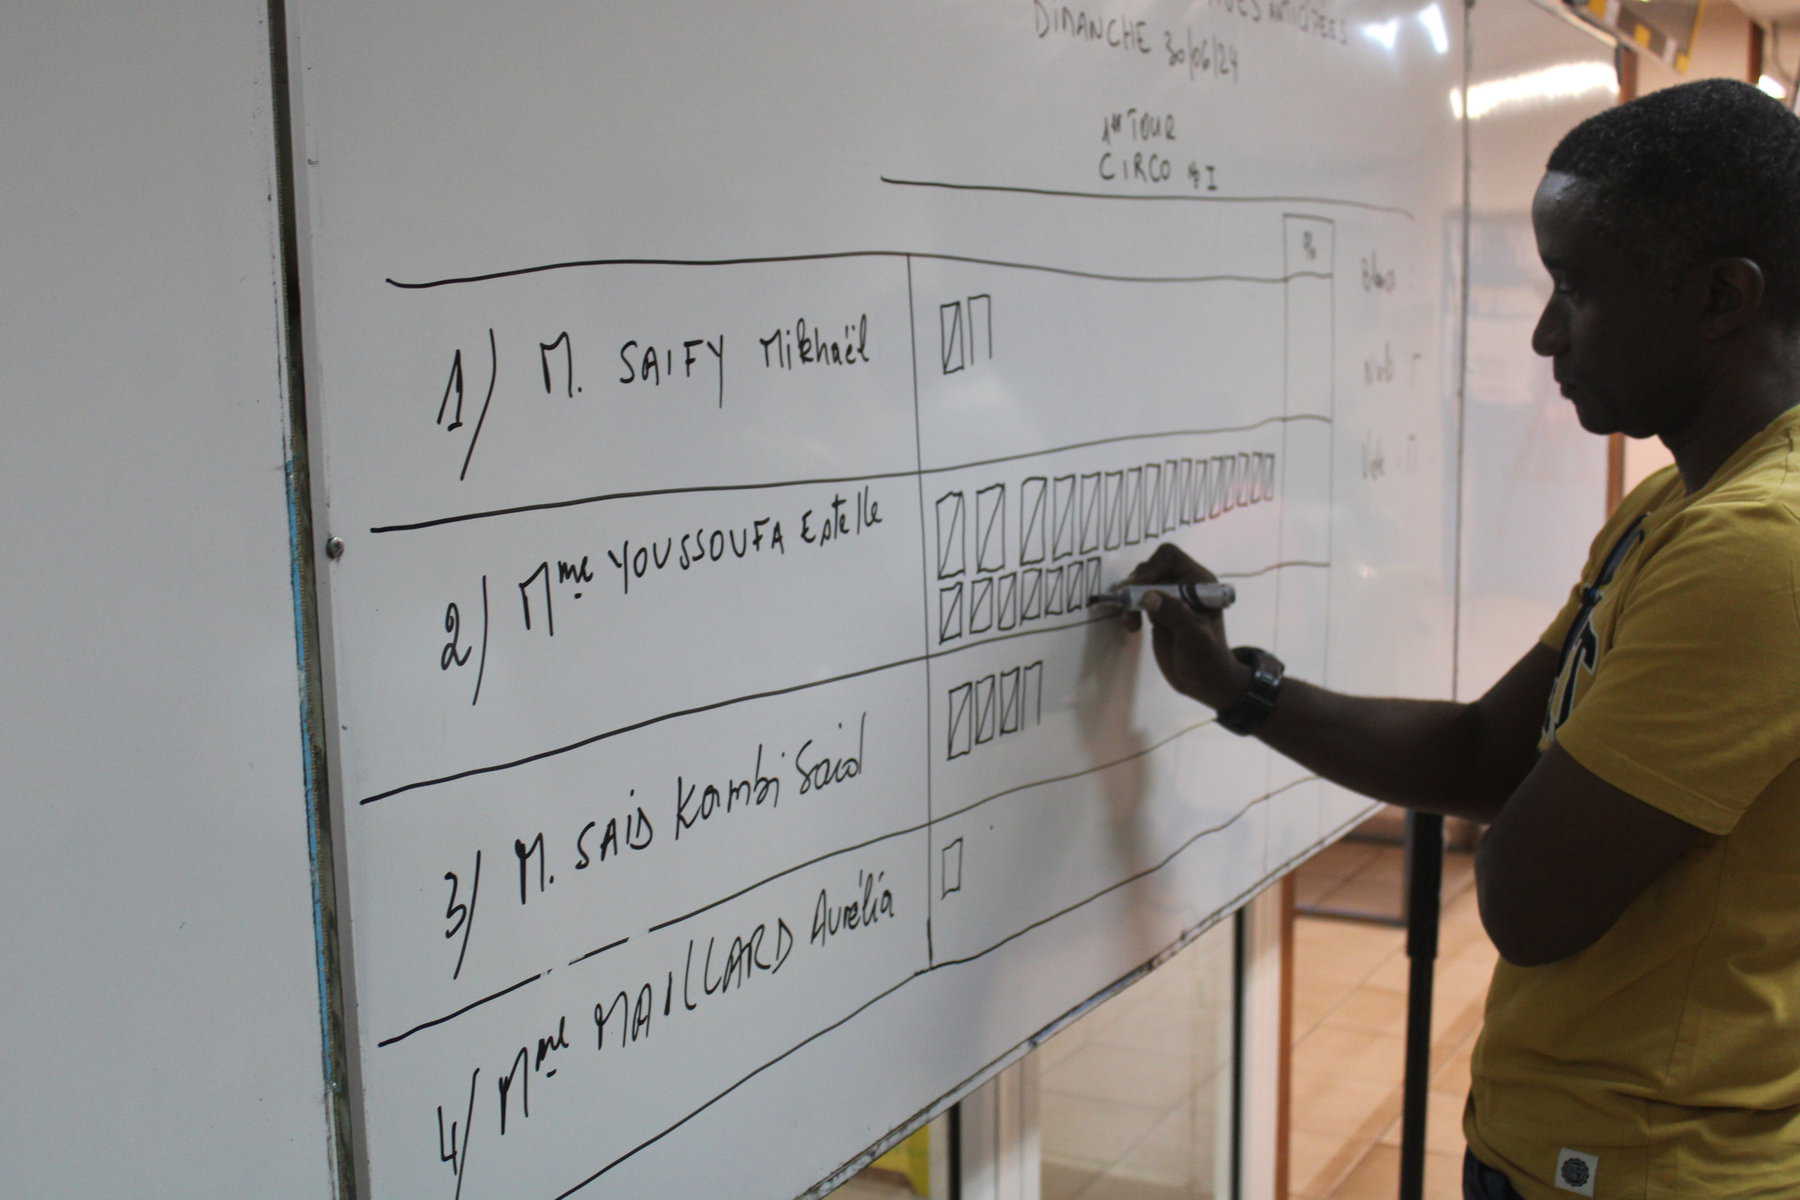 ANTICIPÉES
DIMANCHE 30/06/24
1er TOUR
CIRCO N°I
%
Blancs :
Nuls :
1) M. SAIFY Mikhaël
2) Mme YOUSSOUFA Estelle
3) M. SAID Kambi Said
4) Mme MAILLARD Aurélia